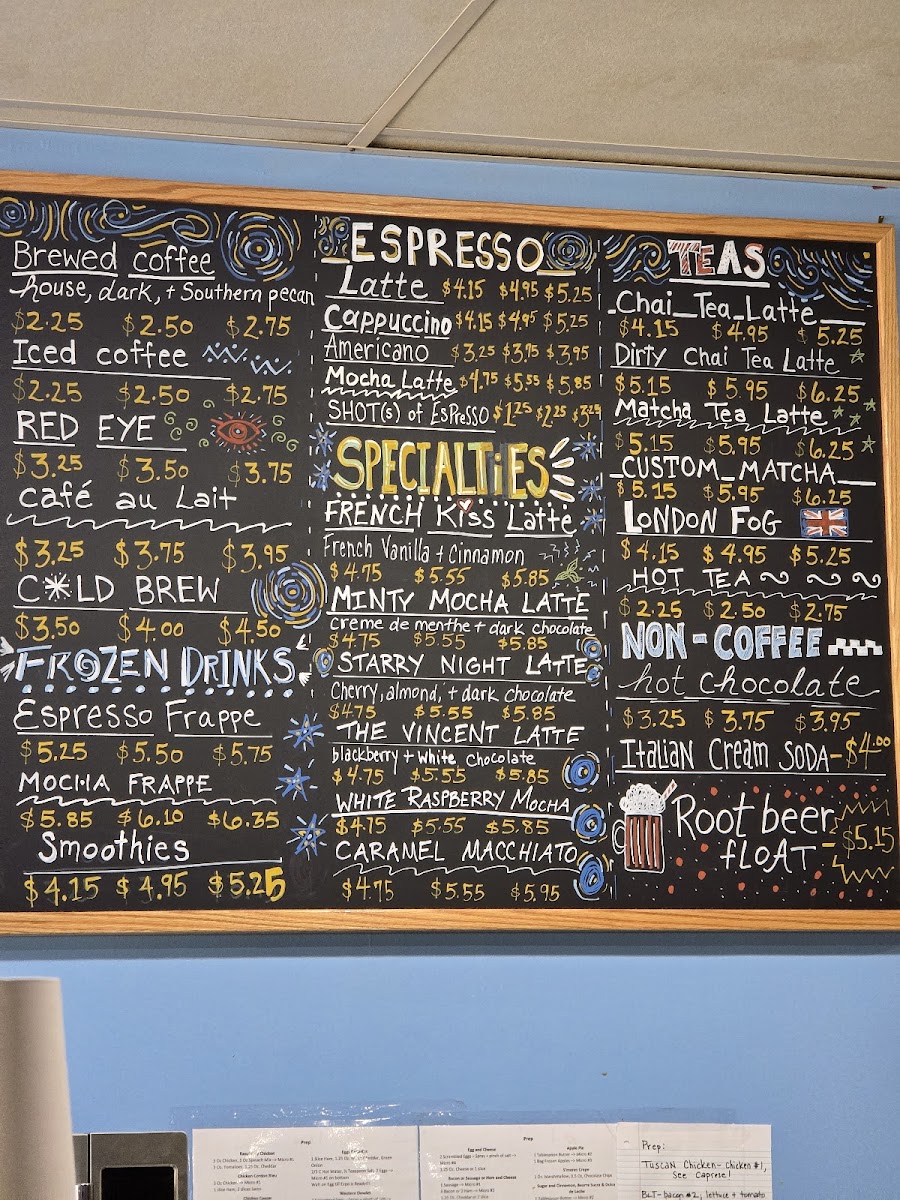 Brewed coffee
house, dark, + Southern pecan
$2.25 $2.50 $2.75
Iced coffee
$2.25 $2.50 $2.75
RED EYE
$3.25 $3.50 $3.75
café au Lait
$3.25 $3.75 $3.95
C*LD BREW
$3.50 $4.00 $4.50
FROZEN DRINKS
Espresso Frappe
$5.25 $5.50 $5.75
MOCHA FRAPPE
$5.85 $6.10 $6.35
Smoothies
$4.15 $4.95 $5.25
ESPRESSO
Latte $4.15 $4.95 $5.25
Cappuccino $4.15 $4.95 $5.25
Americano $3.25 $3.75 $3.95
Mocha Latte $4.75 $5.55 $5.85
SHOT(s) of Espresso $1.25 $2.25 $3.25
SPECIALTiES
FRENCH Kiss Latte
French Vanilla + Cinnamon
$4.75 $5.55 $5.85
MINTY MOCHA LATTE
creme de menthe + dark chocolate
$4.75 $5.55 $5.85
STARRY NIGHT LATTE
Cherry, almond, + dark chocolate
$4.75 $5.55 $5.85
THE VINCENT LATTE
blackberry + white chocolate
$4.75 $5.55 $5.85
WHITE RASPBERRY MOCHA
$4.75 $5.55 $5.85
CARAMEL MACCHIATO
$4.75 $5.55 $5.95
TEAS
Chai Tea Latte
$4.15 $4.95 5.25
Dirty Chai Tea Latte
$5.15 $5.95 $6.25
Matcha Tea Latte
$5.15 $5.95 $6.25
CUSTOM MATCHA
$5.15 $5.95 $6.25
LONDON FOG
$4.15 $4.95 $5.25
HOT TEA
$2.25 $2.50 $2.75
NON-COFFEE
hot chocolate
$3.25 $3.75 $3.95
Italian Cream SODA - $4.00
Root beer
fLOAT - $5.15
Prep
Prep
Egg and Cheese
Apple Pie
Prep:
TUSCAN CHICKEN- Chicken #1,
See Caprese!
BLT- bacon #2, lettuce + tomato